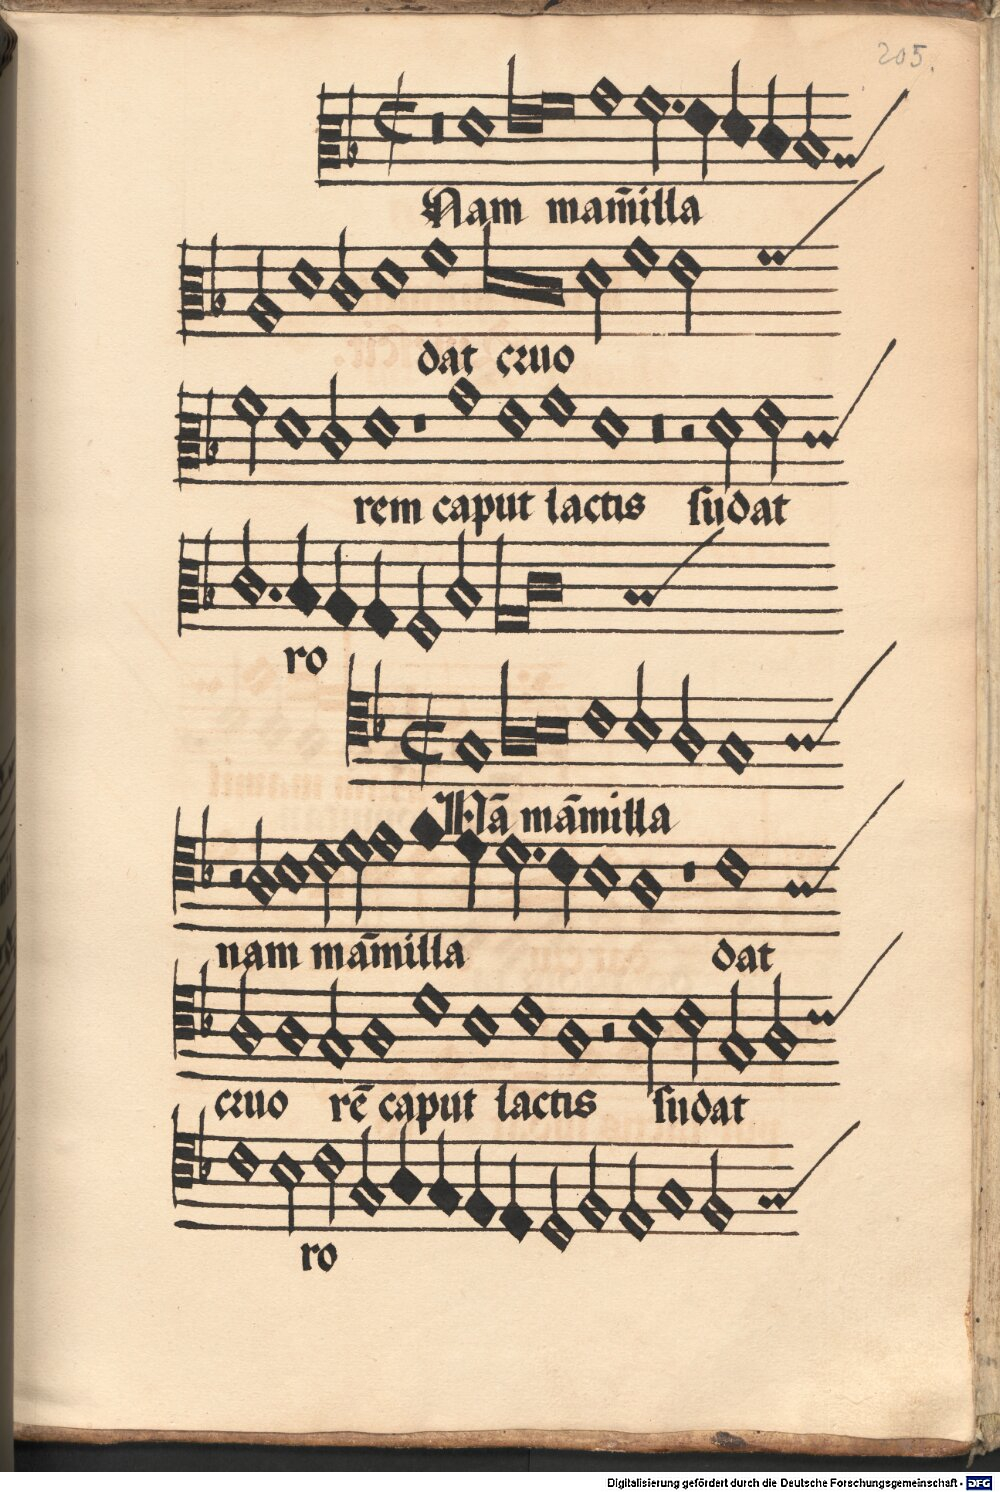 205.
Nam mam̄illa
dat c̄ruo
rem caput lactis sudat
ro
Nā māmilla
nam māmilla dat
cruo rē caput lactis sudat
ro
Digitalisierung gefördert durch die Deutsche Forschungsgemeinschaft - DFG